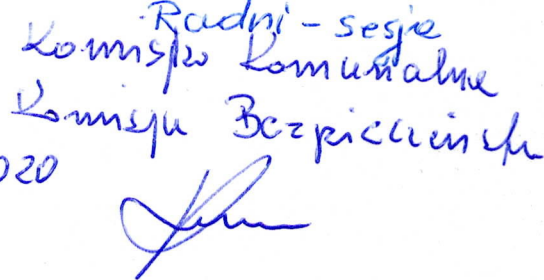 Radni - sesja
Komisja Komunalna
Komisja Bezpieczeństwa
020